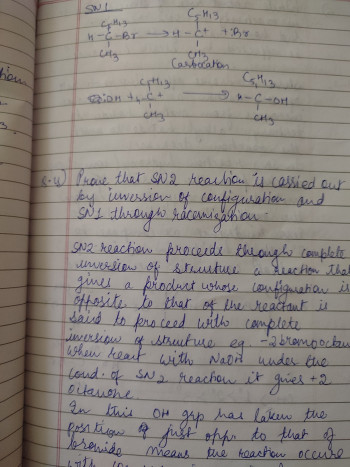 SN1
C6H13 C6H13
H-C-Br → H-C+ + :Br
CH3 CH3
Carbocation
C6H13 C6H13
H-C+ → H-C-OH
CH3 CH3
Prove that SN2 reaction is carried out
by inversion of configuration and
SN1 through racemization
SN2 reaction proceeds through complete
inversion of structure a reaction that
gives a product whose configuration is
opposite to that of the reactant is
said to proceed with complete
inversion of structure eg. -2bromooctane
when react with NaOH under the
cond. of SN2 reaction it gives +2
octanone
In this OH grp has taken the
position of just opp. to that of
bromide means the reaction occurs